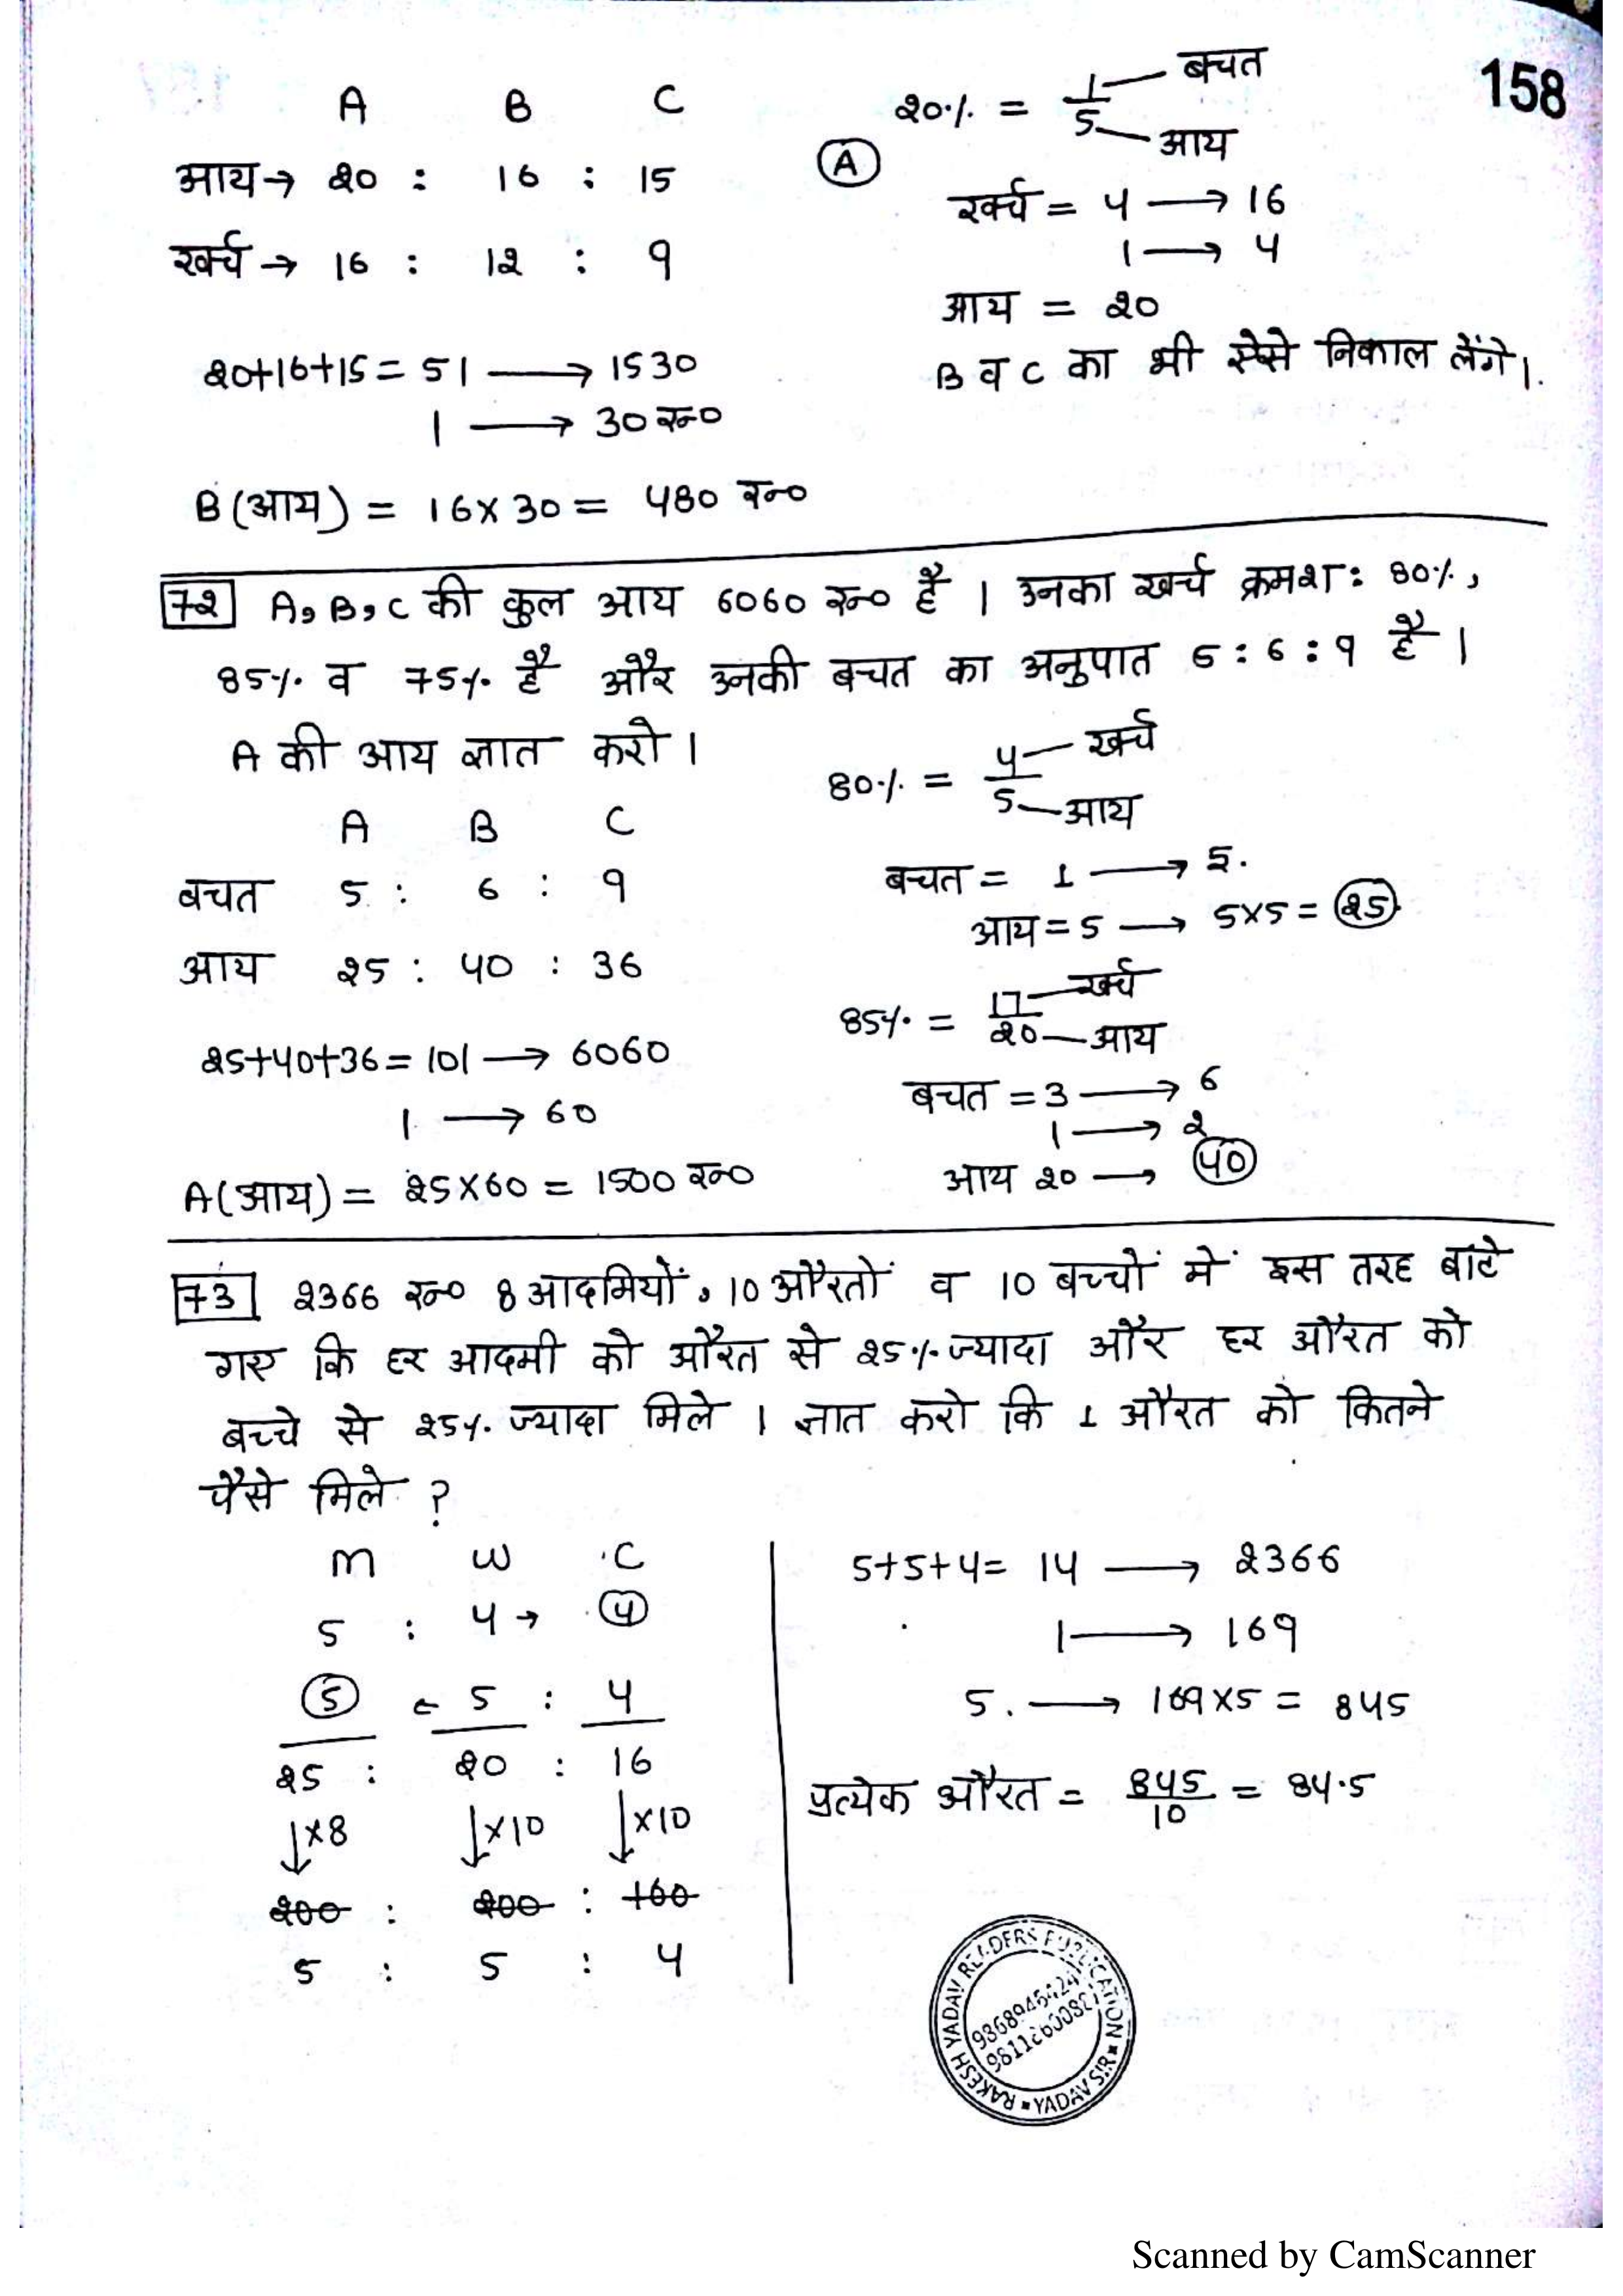 158
A B C
आय → 20 : 16 : 15
खर्च → 16 : 12 : 9
20+16+15 = 51 ⟶ 1530
1 ⟶ 30 रू०
B (आय) = 16 x 30 = 480 रू०
20% = 1/5 बचत आय
(A)
खर्च = 4 ⟶ 16
1 ⟶ 4
आय = 20
B व C का भी ऐसे निकाल लेंगे।
72 A, B, C की कुल आय 6060 रू० है । उनका खर्च क्रमशः 80%,
85% व 75% है और उनकी बचत का अनुपात 5 : 6 : 9 है ।
A की आय ज्ञात करो ।
A B C
बचत 5 : 6 : 9
आय 25 : 40 : 36
25+40+36 = 101 ⟶ 6060
1 ⟶ 60
A (आय) = 25x60 = 1500 रू०
80% = 4/5 खर्च आय
बचत = 1 ⟶ 5.
आय = 5 ⟶ 5x5 = 25
85% = 17/20 खर्च आय
बचत = 3 ⟶ 6
1 ⟶ 2
आय 20 ⟶ 40
73 2366 रू० 8 आदमियों, 10 औरतों व 10 बच्चों में इस तरह बांटे
गए कि हर आदमी को औरत से 25% ज्यादा और हर औरत को
बच्चे से 25% ज्यादा मिले । ज्ञात करो कि 1 औरत को कितने
पैसे मिले ?
M W C
5 : 4 → 4
5 ← 5 : 4
25 : 20 : 16
↓x8 ↓x10 ↓x10
200 : 200 : 160
5 : 5 : 4
5+5+4 = 14 ⟶ 2366
1 ⟶ 169
5. ⟶ 169x5 = 845
प्रत्येक औरत = 845/10 = 84.5
RAKESH YADAV READERS PUBLICATION
YADAV SIR
Scanned by CamScanner